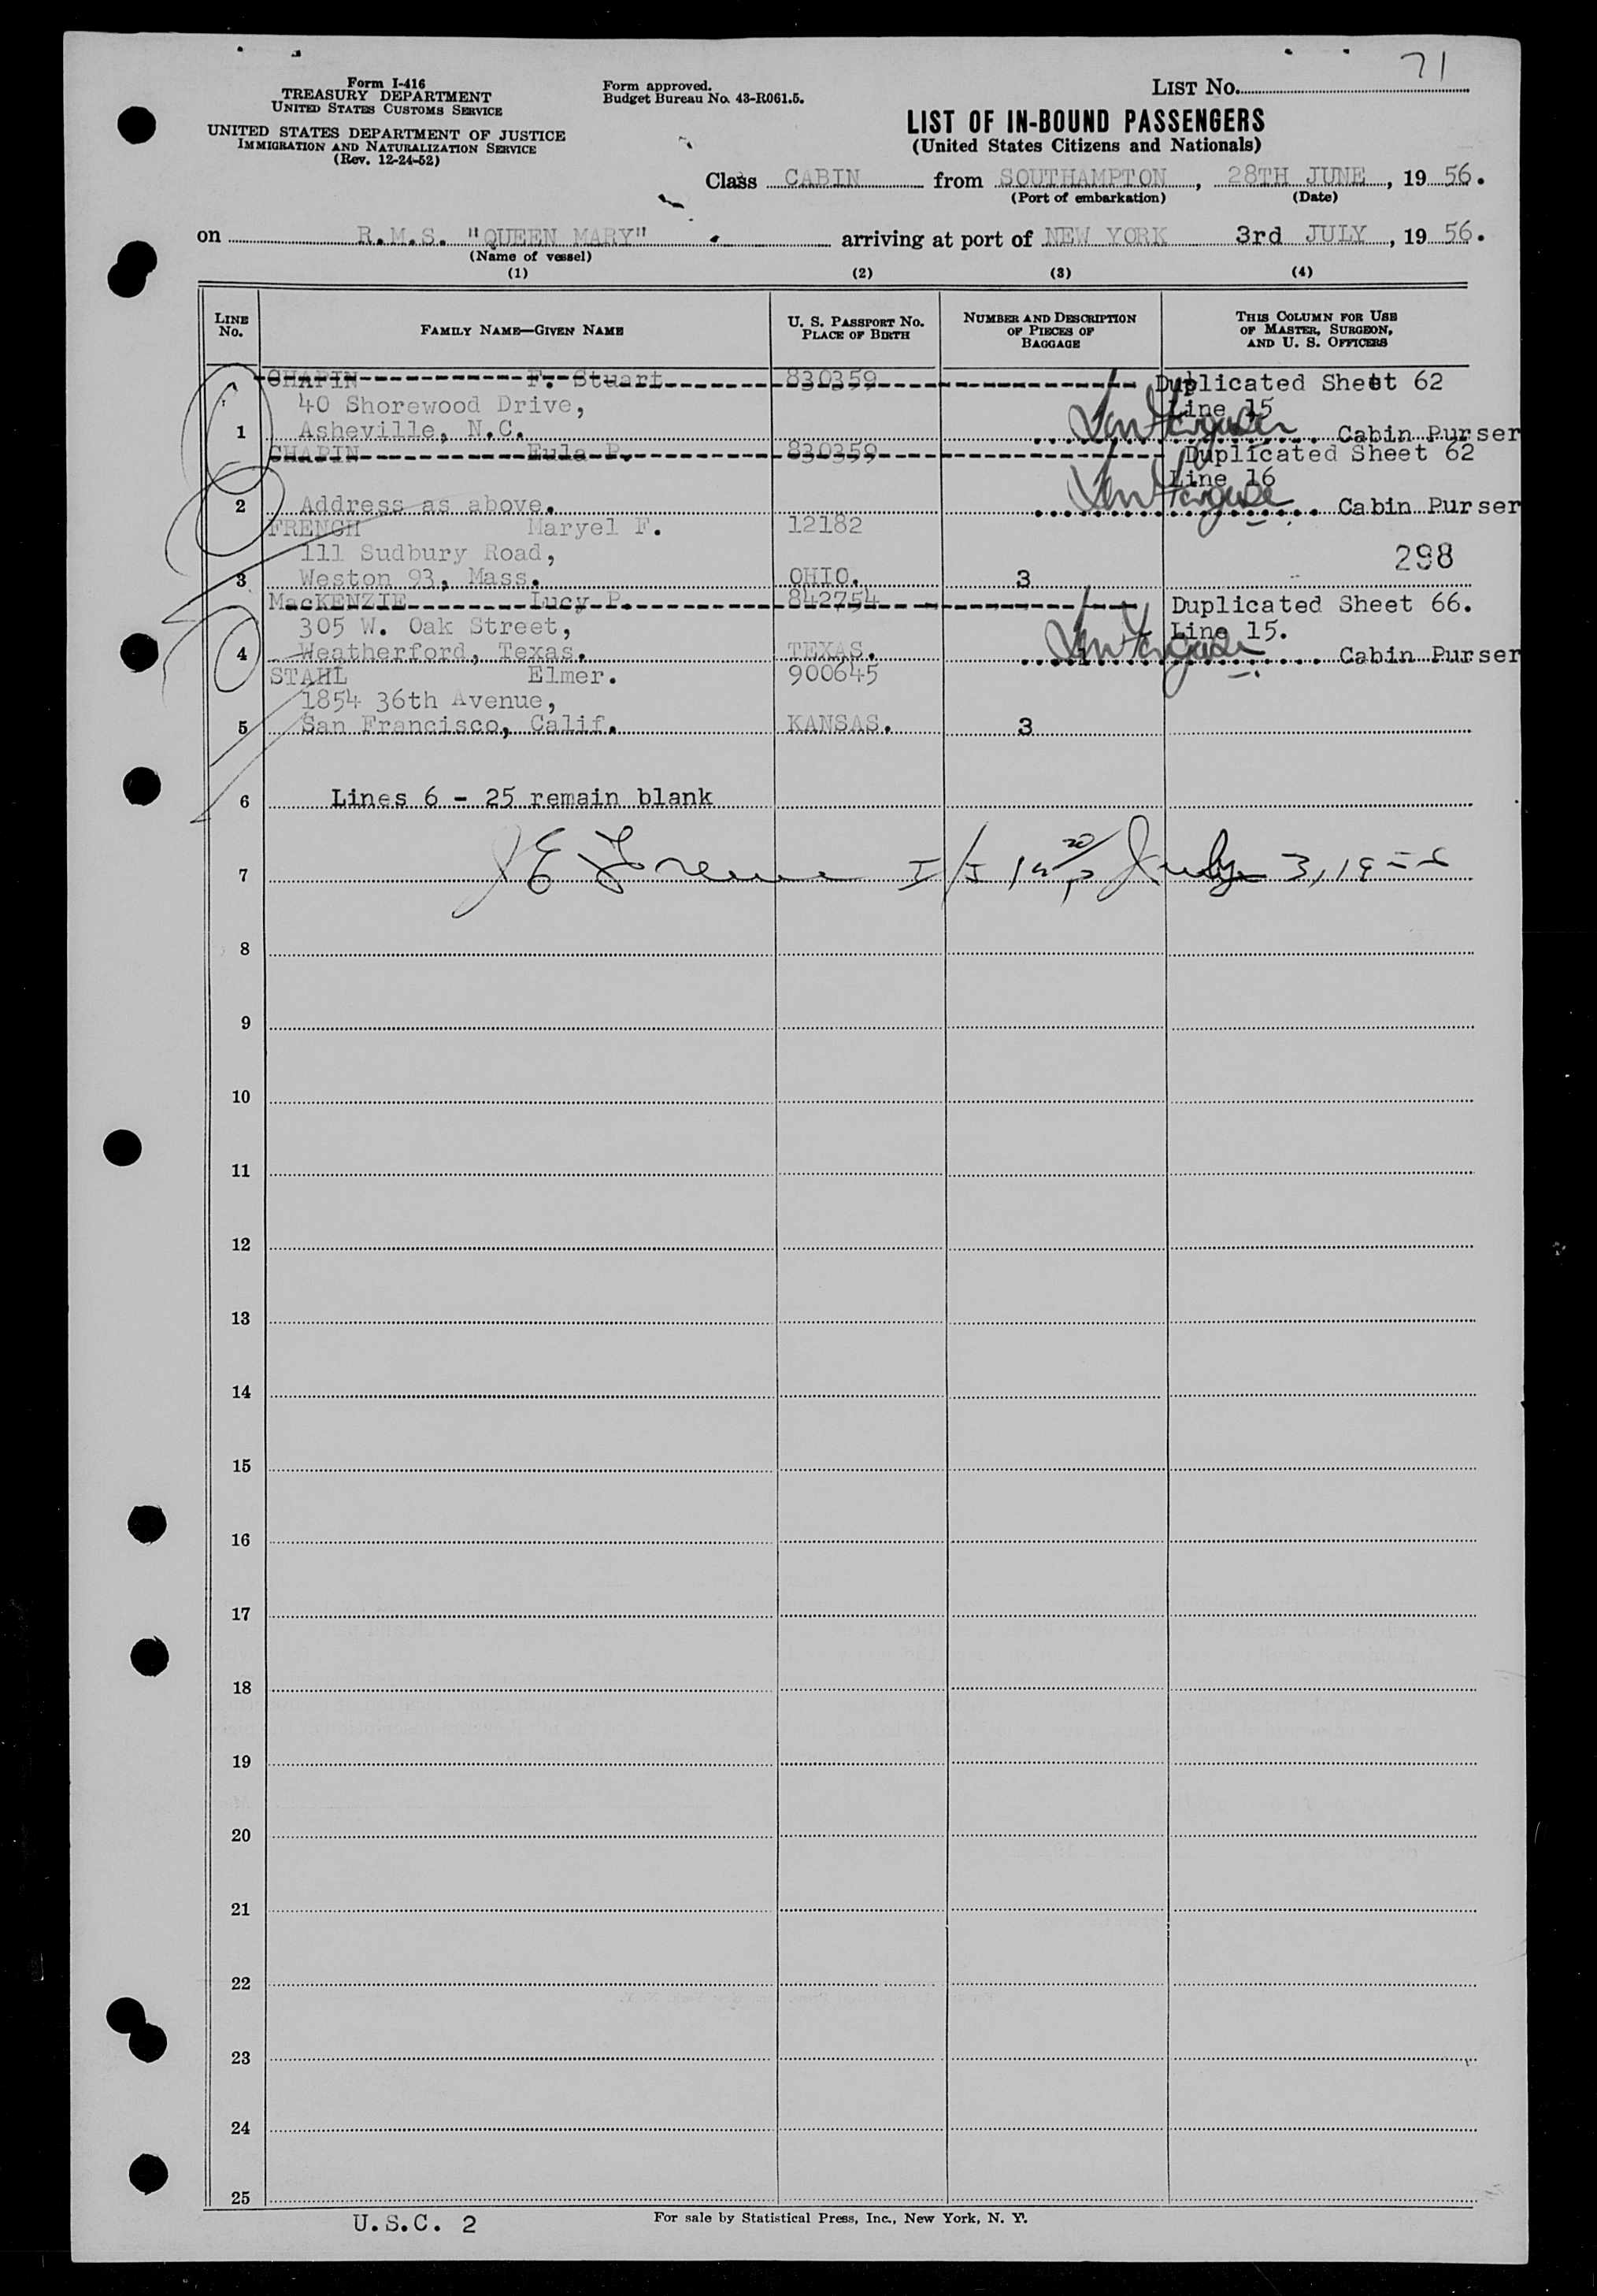 71
Form I-416
TREASURY DEPARTMENT
UNITED STATES CUSTOMS SERVICE
UNITED STATES DEPARTMENT OF JUSTICE
IMMIGRATION AND NATURALIZATION SERVICE
(Rev. 12-24-52)
Form approved.
Budget Bureau No. 43-R061.5.
LIST No.
LIST OF IN-BOUND PASSENGERS
(United States Citizens and Nationals)
Class CABIN from SOUTHAMPTON, 28TH JUNE, 1956.
(Port of embarkation) (Date)
on R.M.S. "QUEEN MARY" arriving at port of NEW YORK 3rd JULY, 1956.
(Name of vessel)
(1) (2) (3) (4)
LINE No. FAMILY NAME—GIVEN NAME U. S. PASSPORT No. PLACE OF BIRTH NUMBER AND DESCRIPTION OF PIECES OF BAGGAGE THIS COLUMN FOR USE OF MASTER, SURGEON, AND U. S. OFFICERS
CHAPIN F. Stuart 830359 Duplicated Sheet 62
40 Shorewood Drive, Line 15
1 Asheville, N.C. Cabin Purser
CHAPIN Eula P. 830359 Duplicated Sheet 62
Line 16
2 Address as above. Cabin Purser
FRENCH Maryel F. 12182
111 Sudbury Road, 298
3 Weston 93, Mass. OHIO. 3
MacKENZIE Lucy P. 842754 Duplicated Sheet 66.
305 W. Oak Street, Line 15.
4 Weatherford, Texas. TEXAS. Cabin Purser
STAHL Elmer. 900645
1854 36th Avenue,
5 San Francisco, Calif. KANSAS. 3
6 Lines 6 - 25 remain blank
7 July 3, 19
8
9
10
11
12
13
14
15
16
17
18
19
20
21
22
23
24
25
U.S.C. 2 For sale by Statistical Press, Inc., New York, N. Y.